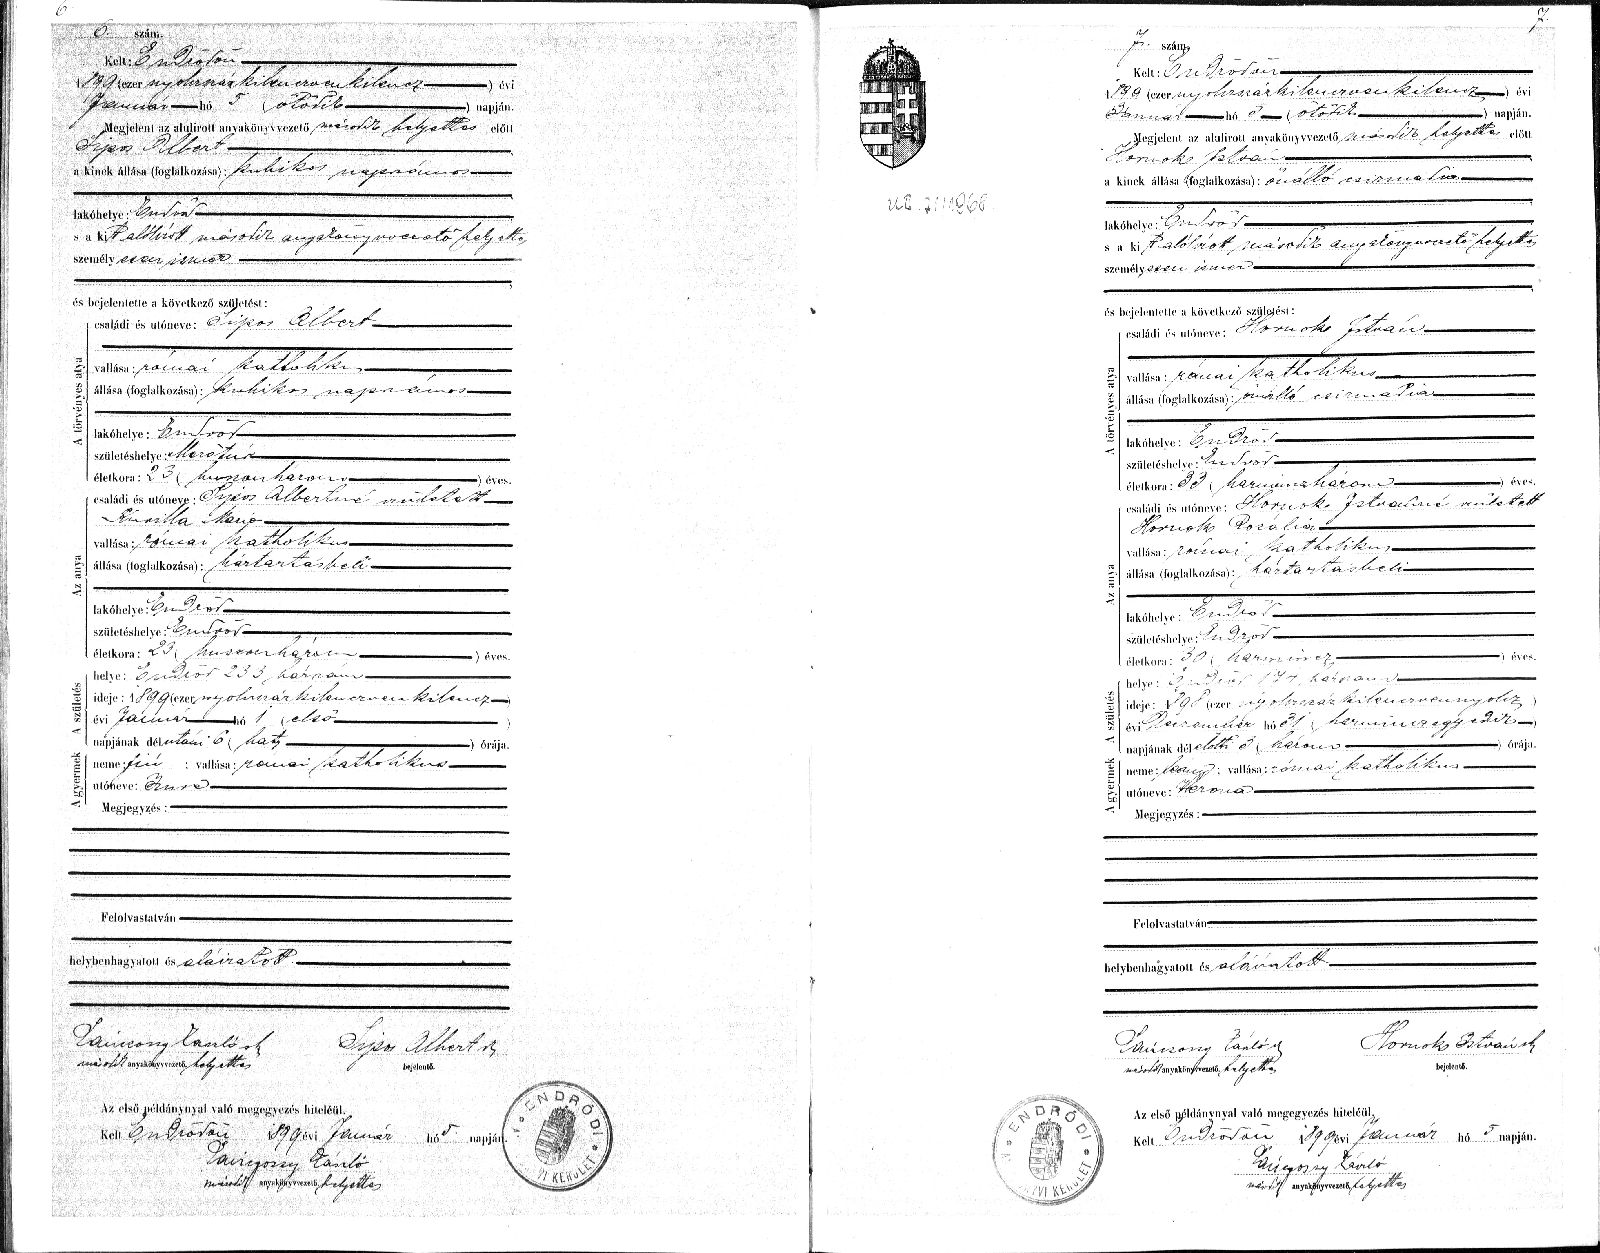 6
6. szám.
Kelt: Endrődön
1899 (ezer nyolczszázkilenczvenkilencz) évi
Január hó 5 (ötödik) napján.
Megjelent az alulirott anyakönyvvezető második helyettes előtt
Sipos Albert
a kinek állása (foglalkozása): kubikos napszámos
lakóhelye: Endrőd
s a kit alólirott második anyakönyvvezető helyettes
személyesen ismer
és bejelentette a következő születést:
A törvényes atya
családi és utóneve: Sipos Albert
vallása: római katholikus
állása (foglalkozása): kubikos napszámos
lakóhelye: Endrőd
születéshelye: Mezőtúr
életkora: 23 (huszonhárom) éves.
Az anya
családi és utóneve: Sipos Albertné született
Mária
vallása: római katholikus
állása (foglalkozása): háztartásbeli
lakóhelye: Endrőd
születéshelye: Endrőd
életkora: 23 (huszonhárom) éves.
A születés
helye: Endrőd 233 házszám
ideje: 1899 (ezer nyolczszázkilenczvenkilencz)
évi Január hó 1 (első)
napjának délutáni 6 (hat) órája.
A gyermek
neme: fiú : vallása: római katholikus
utóneve: Imre
Megjegyzés:
Felolvastatván
helybenhagyatott és aláiratott
László sk
második anyakönyvvezető, helyettes
Sipos Albert sk
bejelentő.
Az első példánynyal való megegyezés hiteléül.
Kelt Endrődön 1899 évi Január hó 5 napján.
László
második anyakönyvvezető, helyettes
ENDRŐDI
ANYAKÖNYVI KERÜLET
7.
7. szám.
Kelt: Endrődön
1899 (ezer nyolczszázkilenczvenkilencz) évi
Január hó 5 (ötödik) napján.
Megjelent az alulirott anyakönyvvezető második helyettes előtt
Hornok István
a kinek állása (foglalkozása): önálló csizmadia
lakóhelye: Endrőd
s a kit alólirott második anyakönyvvezető helyettes
személyesen ismer
és bejelentette a következő születést:
A törvényes atya
családi és utóneve: Hornok István
vallása: római katholikus
állása (foglalkozása): önálló csizmadia
lakóhelye: Endrőd
születéshelye: Endrőd
életkora: 33 (harminczhárom) éves.
Az anya
családi és utóneve: Hornok Istvánné született
Hornok Rozália
vallása: római katholikus
állása (foglalkozása): háztartásbeli
lakóhelye: Endrőd
születéshelye: Endrőd
életkora: 30 (harmincz) éves.
A születés
helye: Endrőd házszám
ideje: 1898 (ezer nyolczszázkilenczvennyolcz)
évi Deczember hó 31 (harminczegyedik)
napjának délelőtti 3 (három) órája.
A gyermek
neme: leány : vallása: római katholikus
utóneve: Verona
Megjegyzés:
Felolvastatván
helybenhagyatott és aláiratott
László sk
második anyakönyvvezető, helyettes
Hornok István sk
bejelentő.
Az első példánynyal való megegyezés hiteléül.
Kelt Endrődön 1899 évi Január hó 5 napján.
László
második anyakönyvvezető, helyettes
ENDRŐDI
ANYAKÖNYVI KERÜLET